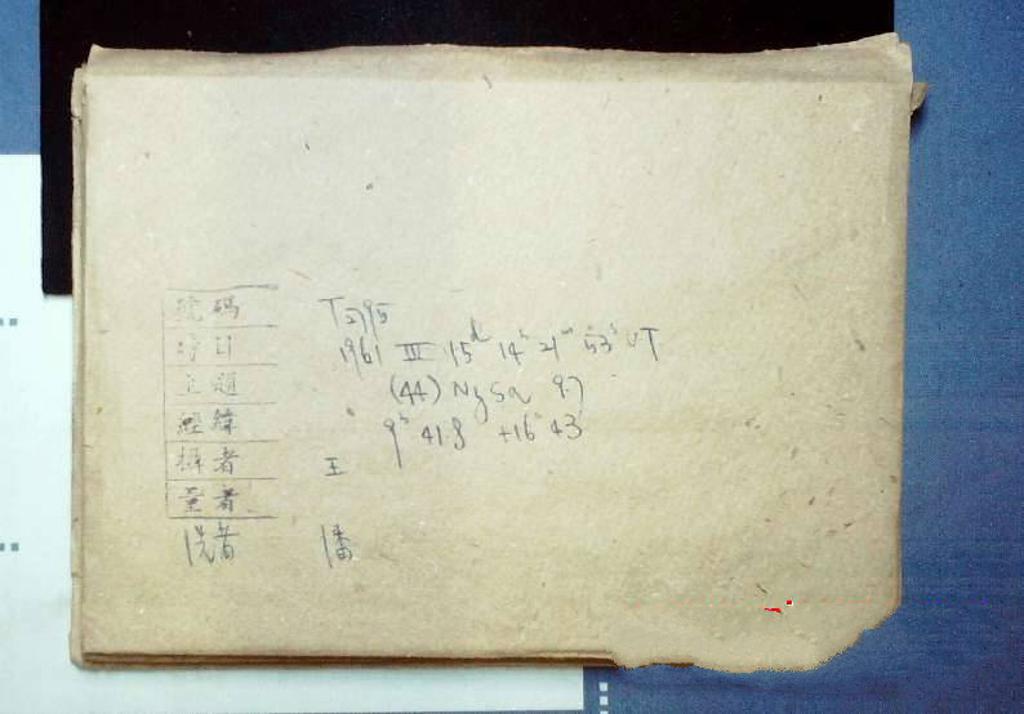 號碼 T2795
時日 1961 III 15ᵈ 14ʰ 21ᵐ 53ˢ UT
主題 (44) Nysa 9.7
經緯 9ʰ 41.8 +16° 43
攝者 王
量者
洗者 潘